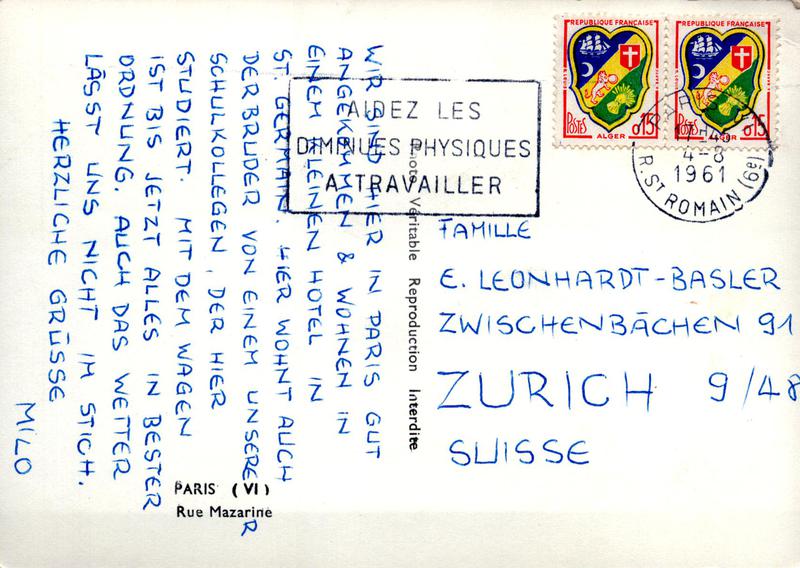 WIR SIND HIER IN PARIS GUT
ANGEKOMMEN & WOHNEN IN
EINEM KLEINEN HOTEL IN
ST. GERMAIN. HIER WOHNT AUCH
DER BRUDER VON EINEM UNSERER
SCHULKOLLEGEN, DER HIER
STUDIERT. MIT DEM WAGEN
IST BIS JETZT ALLES IN BESTER
ORDNUNG. AUCH DAS WETTER
LÄSST UNS NICHT IM STICH.
HERZLICHE GRÜSSE
MILO
AIDEZ LES
DIMINUES PHYSIQUES
A TRAVAILLER
REPUBLIQUE FRANÇAISE
POSTES
ALGER
0,15
REPUBLIQUE FRANÇAISE
POSTES
ALGER
0,15
17H45
4-8
1961
R. ST ROMAIN (6è)
Photo Véritable Reproduction Interdite
FAMILLE
E. LEONHARDT-BASLER
ZWISCHENBÄCHEN 91
ZURICH 9/48
SUISSE
PARIS (VI)
Rue Mazarine